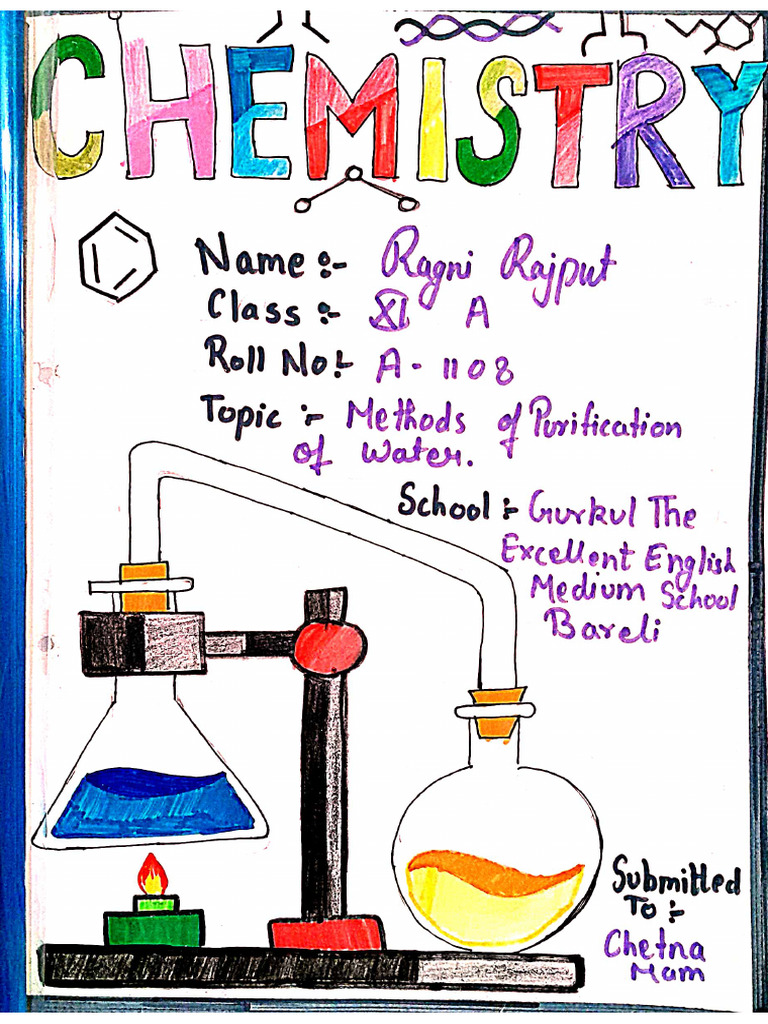 CHEMISTRY
Name :- Ragni Rajput
Class :- XI A
Roll No:- A-1108
Topic :- Methods of Purification
of Water.
School :- Gurkul The
Excellent English
Medium School
Bareli
Submitted
To :-
Chetna
Mam